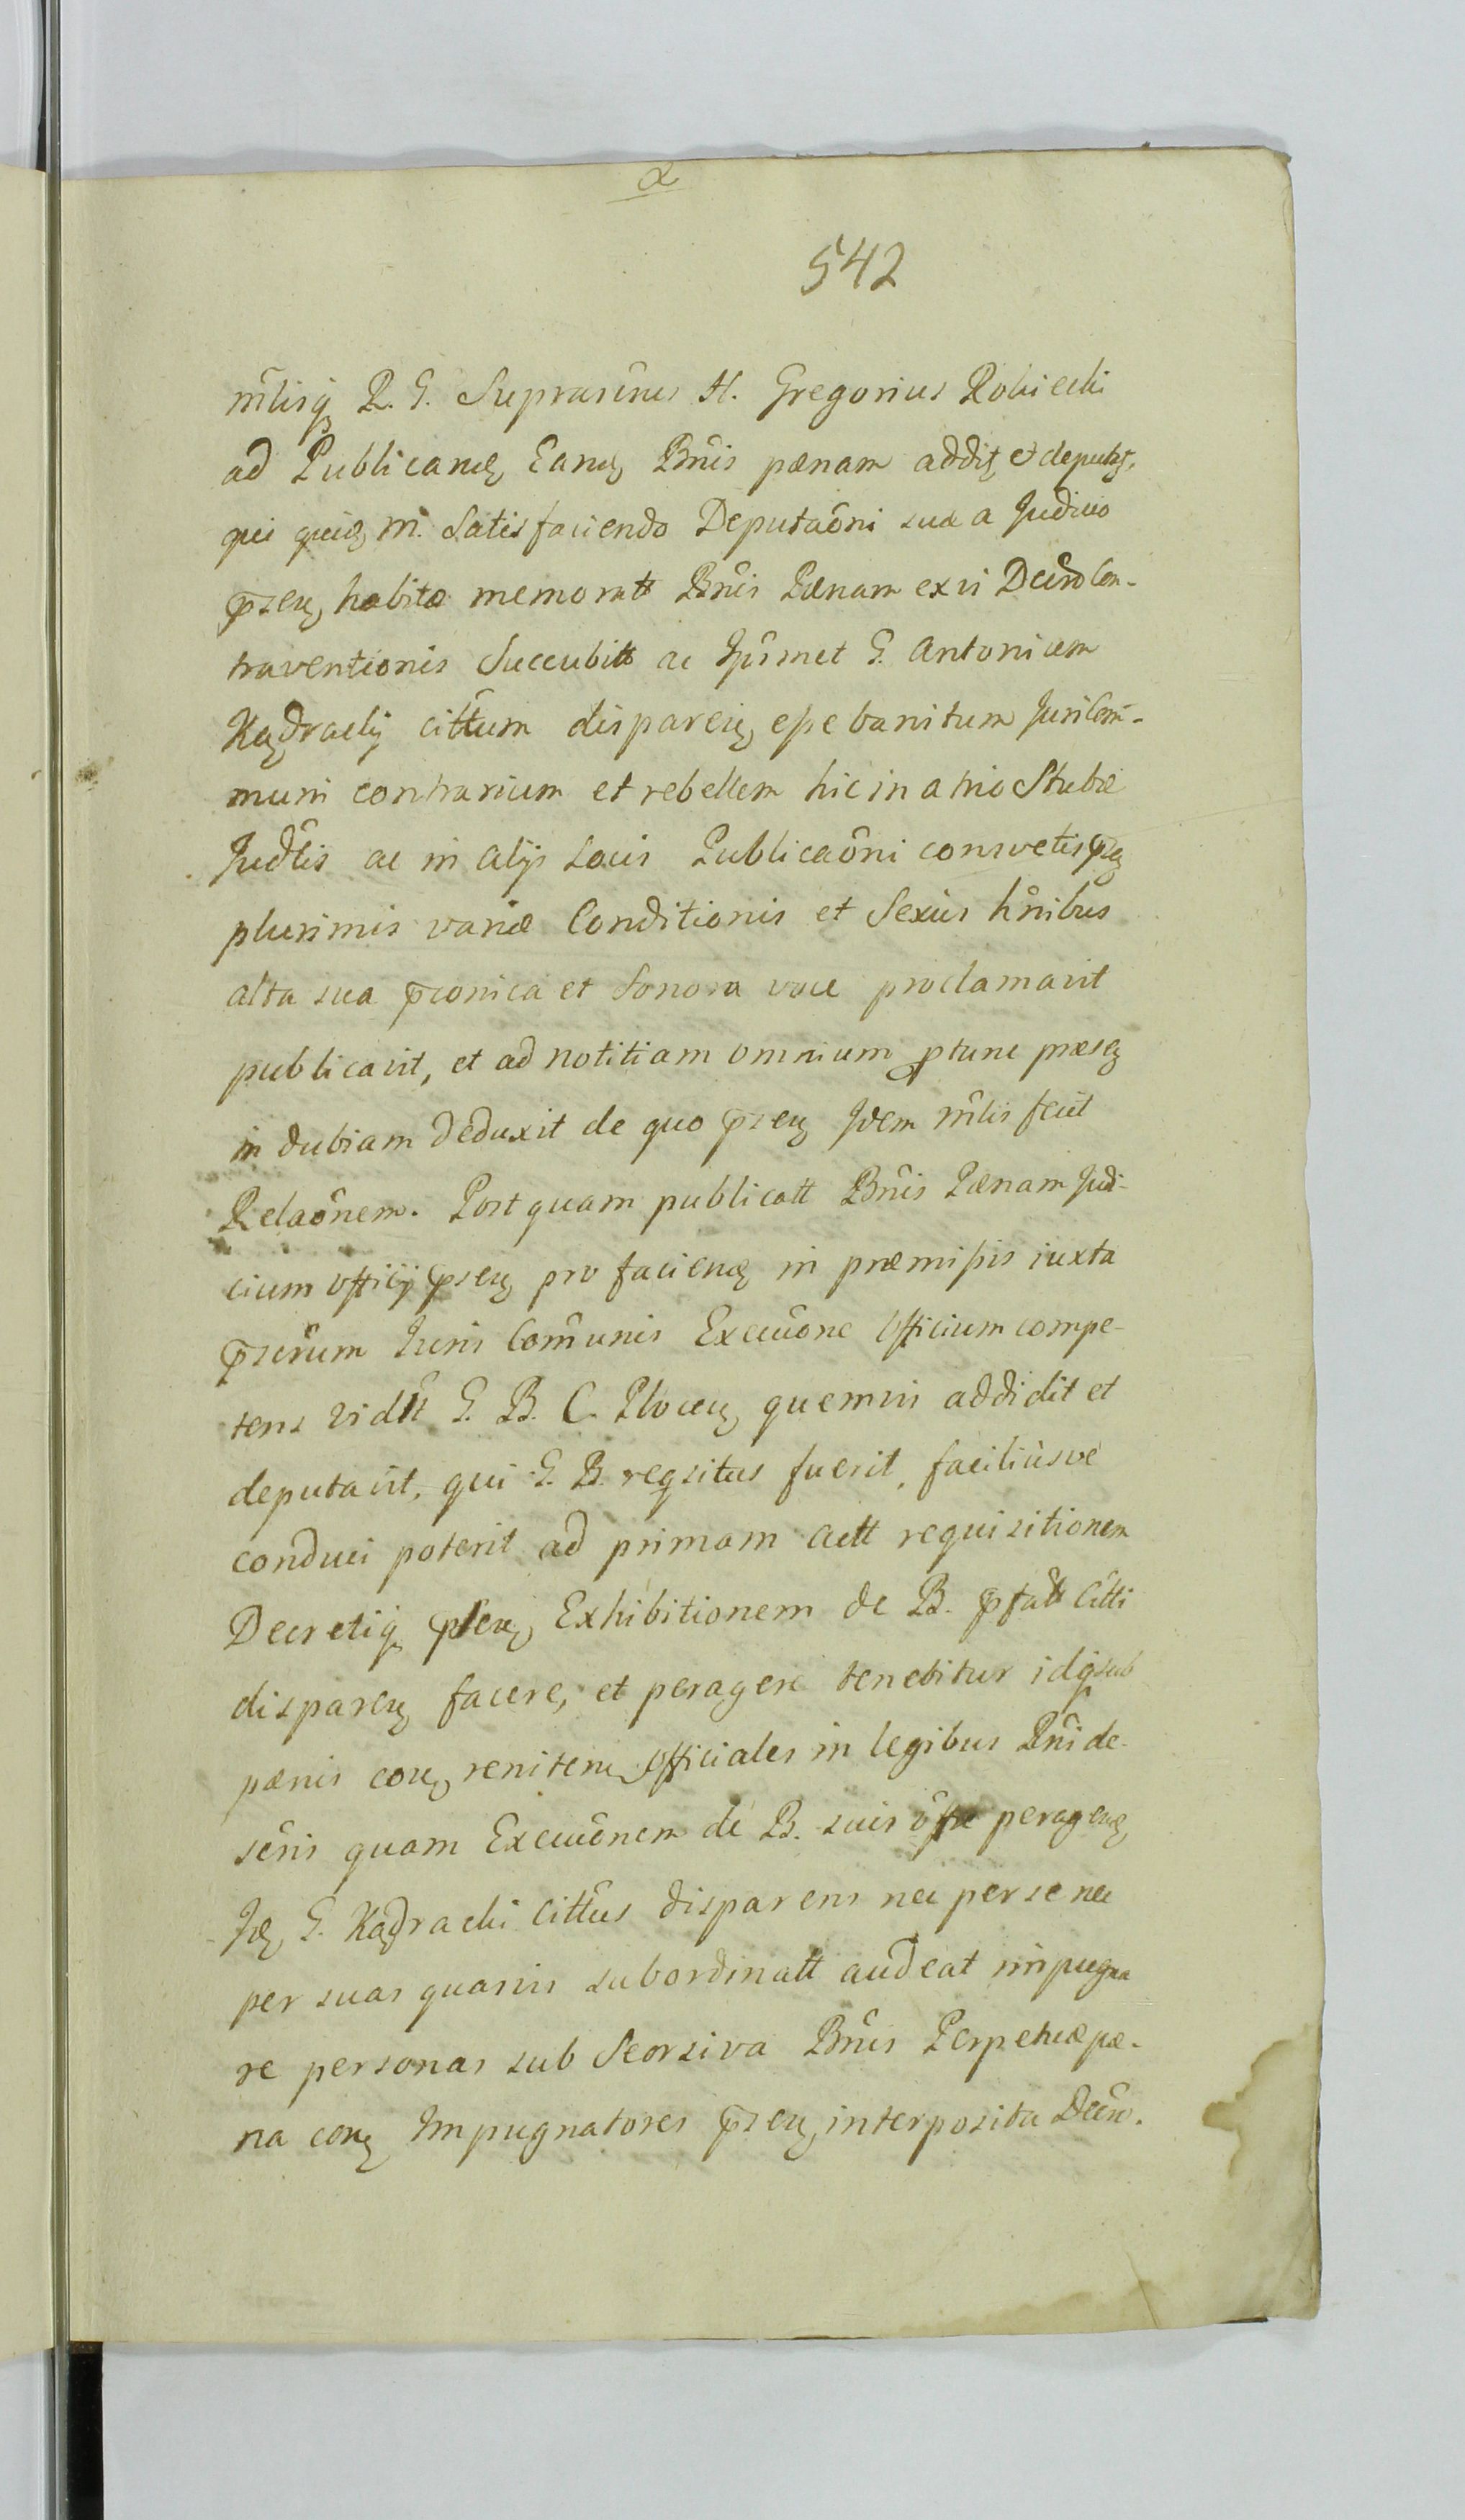 α
542
mlisq R. G. Suprascrius H. Gregorius Robiecki
ad Publicanđ Eanđ Bnis pænam additg et deputatg.
qui quidē M. Satisfaciendo Deputaôni suæ a Judicio
pzen habitæ memoratt Bnis Pænam ex vi Decrō Con-
traventionis Succubitt ac Ipsmet G. Antonium
Kądracky cittum disparen, esse banitum Juri Com-
muni contrarium et rebellem hic in atrio Stubæ
Judlis ac in alijs Locis Publicaôni consvetis pzen
plurimis variæ Conditionis et Sexûs hnibus
alta sua pconica et Sonora voce proclamavit
publicavit, et ad notitiam omnium ptunc præsen
in dubiam deduxit de quo pzen Idem mlis fecit
Relaônem. Postquam publicatt Bnis Pænam Judi-
cium officij pzen pro faciendē in præmissis iuxta
pzcrum Juris Comunis Execuône Officium compe-
tens vidlt G. B. C. Plocen quemvis addidit et
deputavit, qui G. B. reqsitus fuerit, faciliùsve
conduci poterit ad primam actt requisitionem
Decretiq pzen Exhibitionem de B. pfatt Citti
disparen facere, et peragere tenebitur idq sub
pænis con renitem Officiales in legibus Rni de-
scris quam Execuônem de B. suis ut pr peragenđ
Idē G. Kądracki Cittus disparens nec per se nec
per suas quasvis subordinatt audeat impugna
re personas sub Seorsiva Bnis Perpetuæ pæ-
na con Impugnatores pzen interposita Decro.